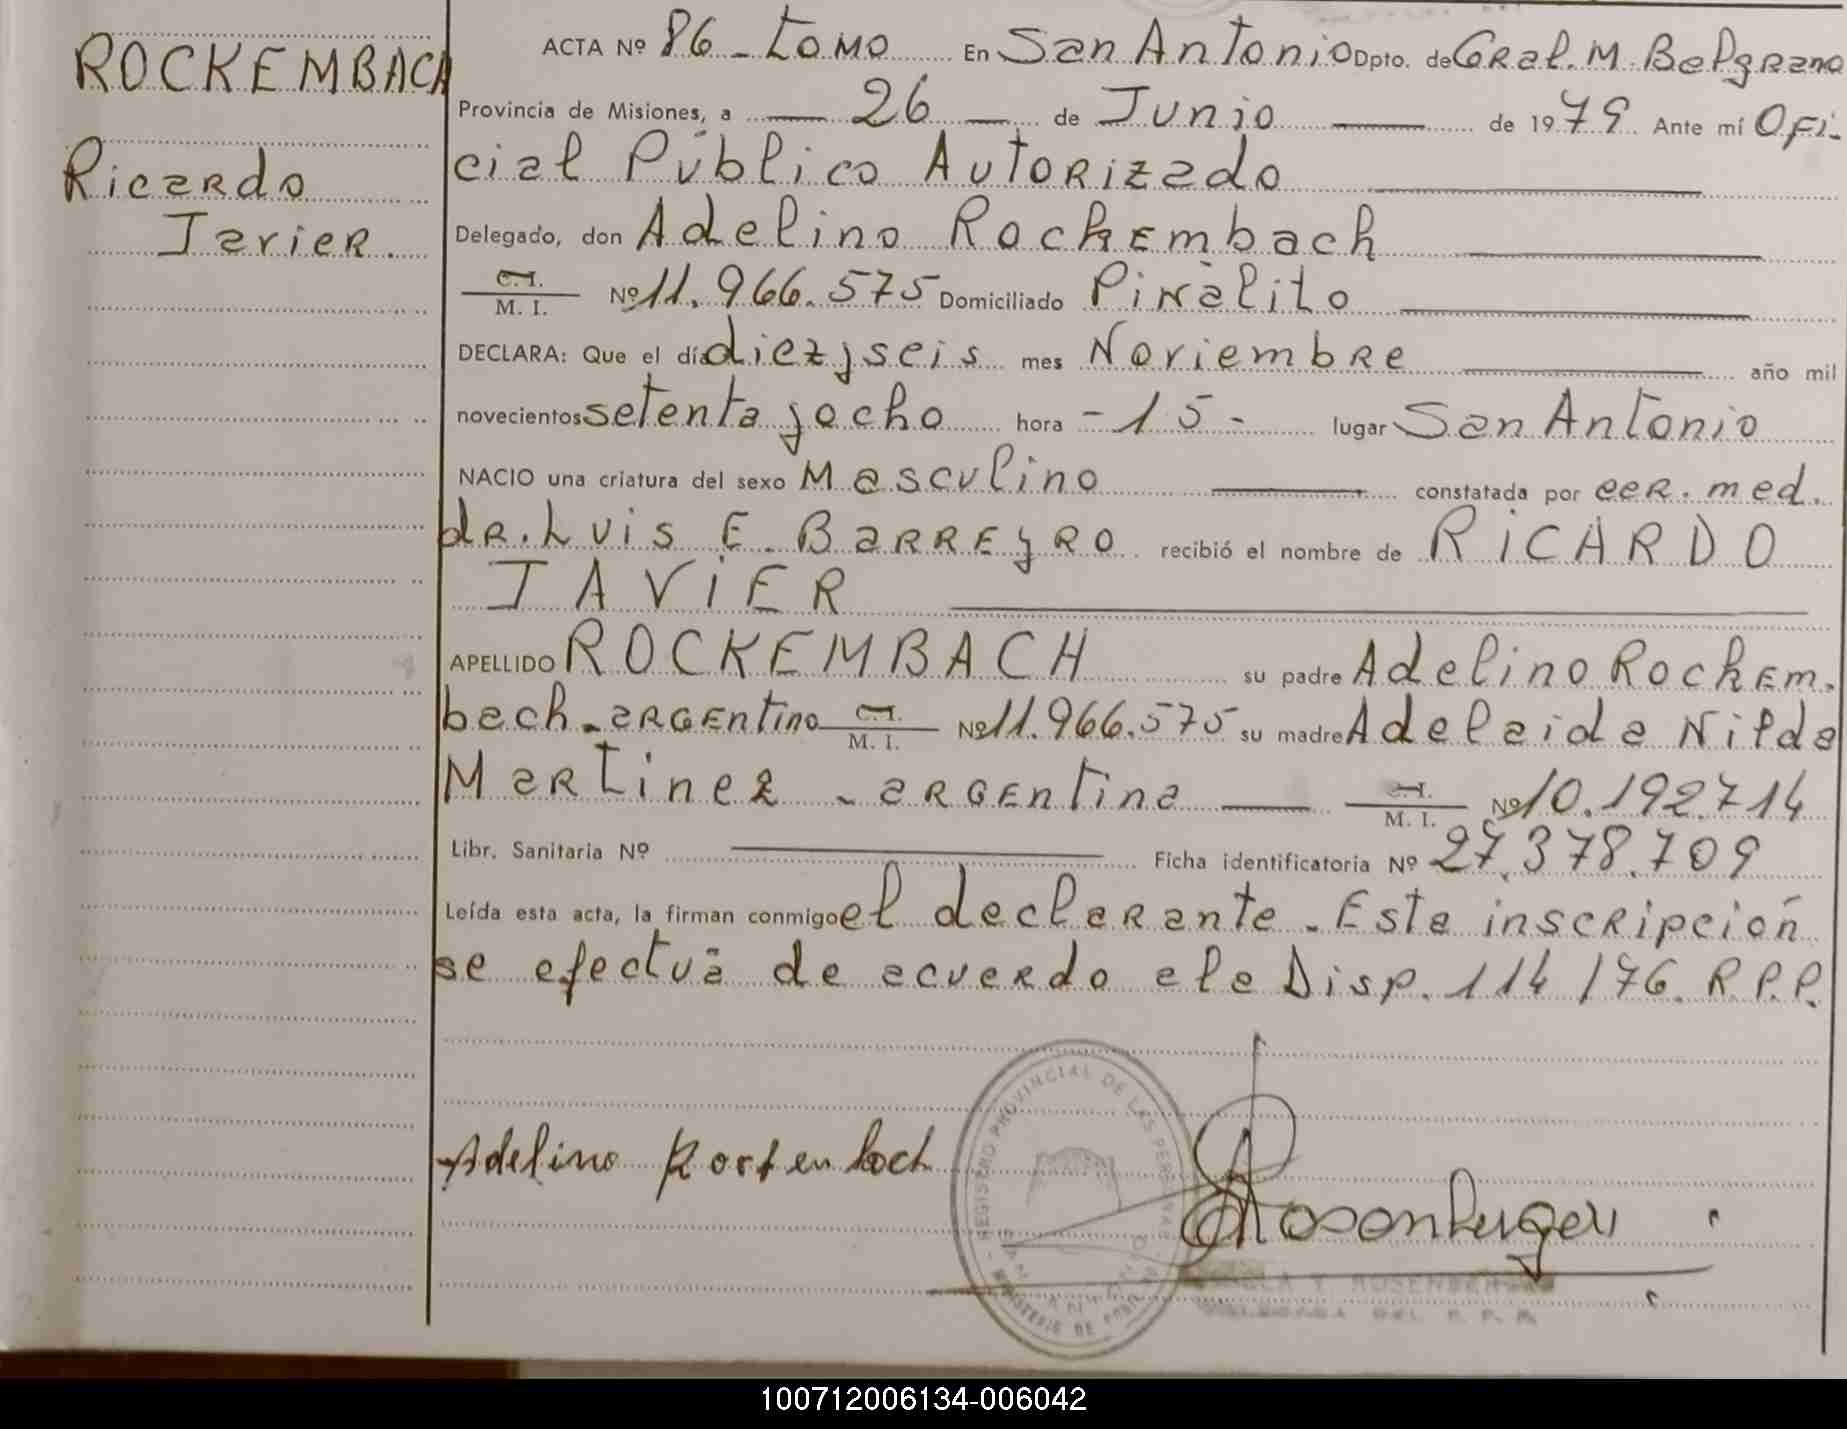 ROCKEMBACH
Ricardo
Javier.
ACTA Nº 86 - Tomo En San Antonio Dpto. de Gral. M. Belgrano
Provincia de Misiones, a 26 de Junio de 1979 Ante mí Ofi-
cial Público Autorizado
Delegado, don Adelino Rockembach
C.I.
M. I. Nº 11.966.575 Domiciliado Piñalito
DECLARA: Que el día diez y seis mes Noviembre año mil
novecientos setenta y ocho hora - 15 - lugar San Antonio
NACIO una criatura del sexo Masculino constatada por cer. med.
dr. Luis E. Barreyro recibió el nombre de RICARDO
JAVIER
APELLIDO ROCKEMBACH su padre Adelino Rockem-
bach - argentino C.I. M. I. Nº 11.966.575 su madre Adelaida Nilda
Martinez - argentina C.I. M. I. Nº 10.192.714
Libr. Sanitaria Nº Ficha identificatoria Nº 27.378.709
Leída esta acta, la firman conmigo el declarante. Esta inscripción
se efectuà de acuerdo a la Disp. 114/76. R.P.P.
REGISTRO PROVINCIAL DE LAS PERSONAS
MINISTERIO DE
SAN ANTONIO
Adelino
Rosenberger
ROSENBERGER
DEL R.P.P.
100712006134-006042